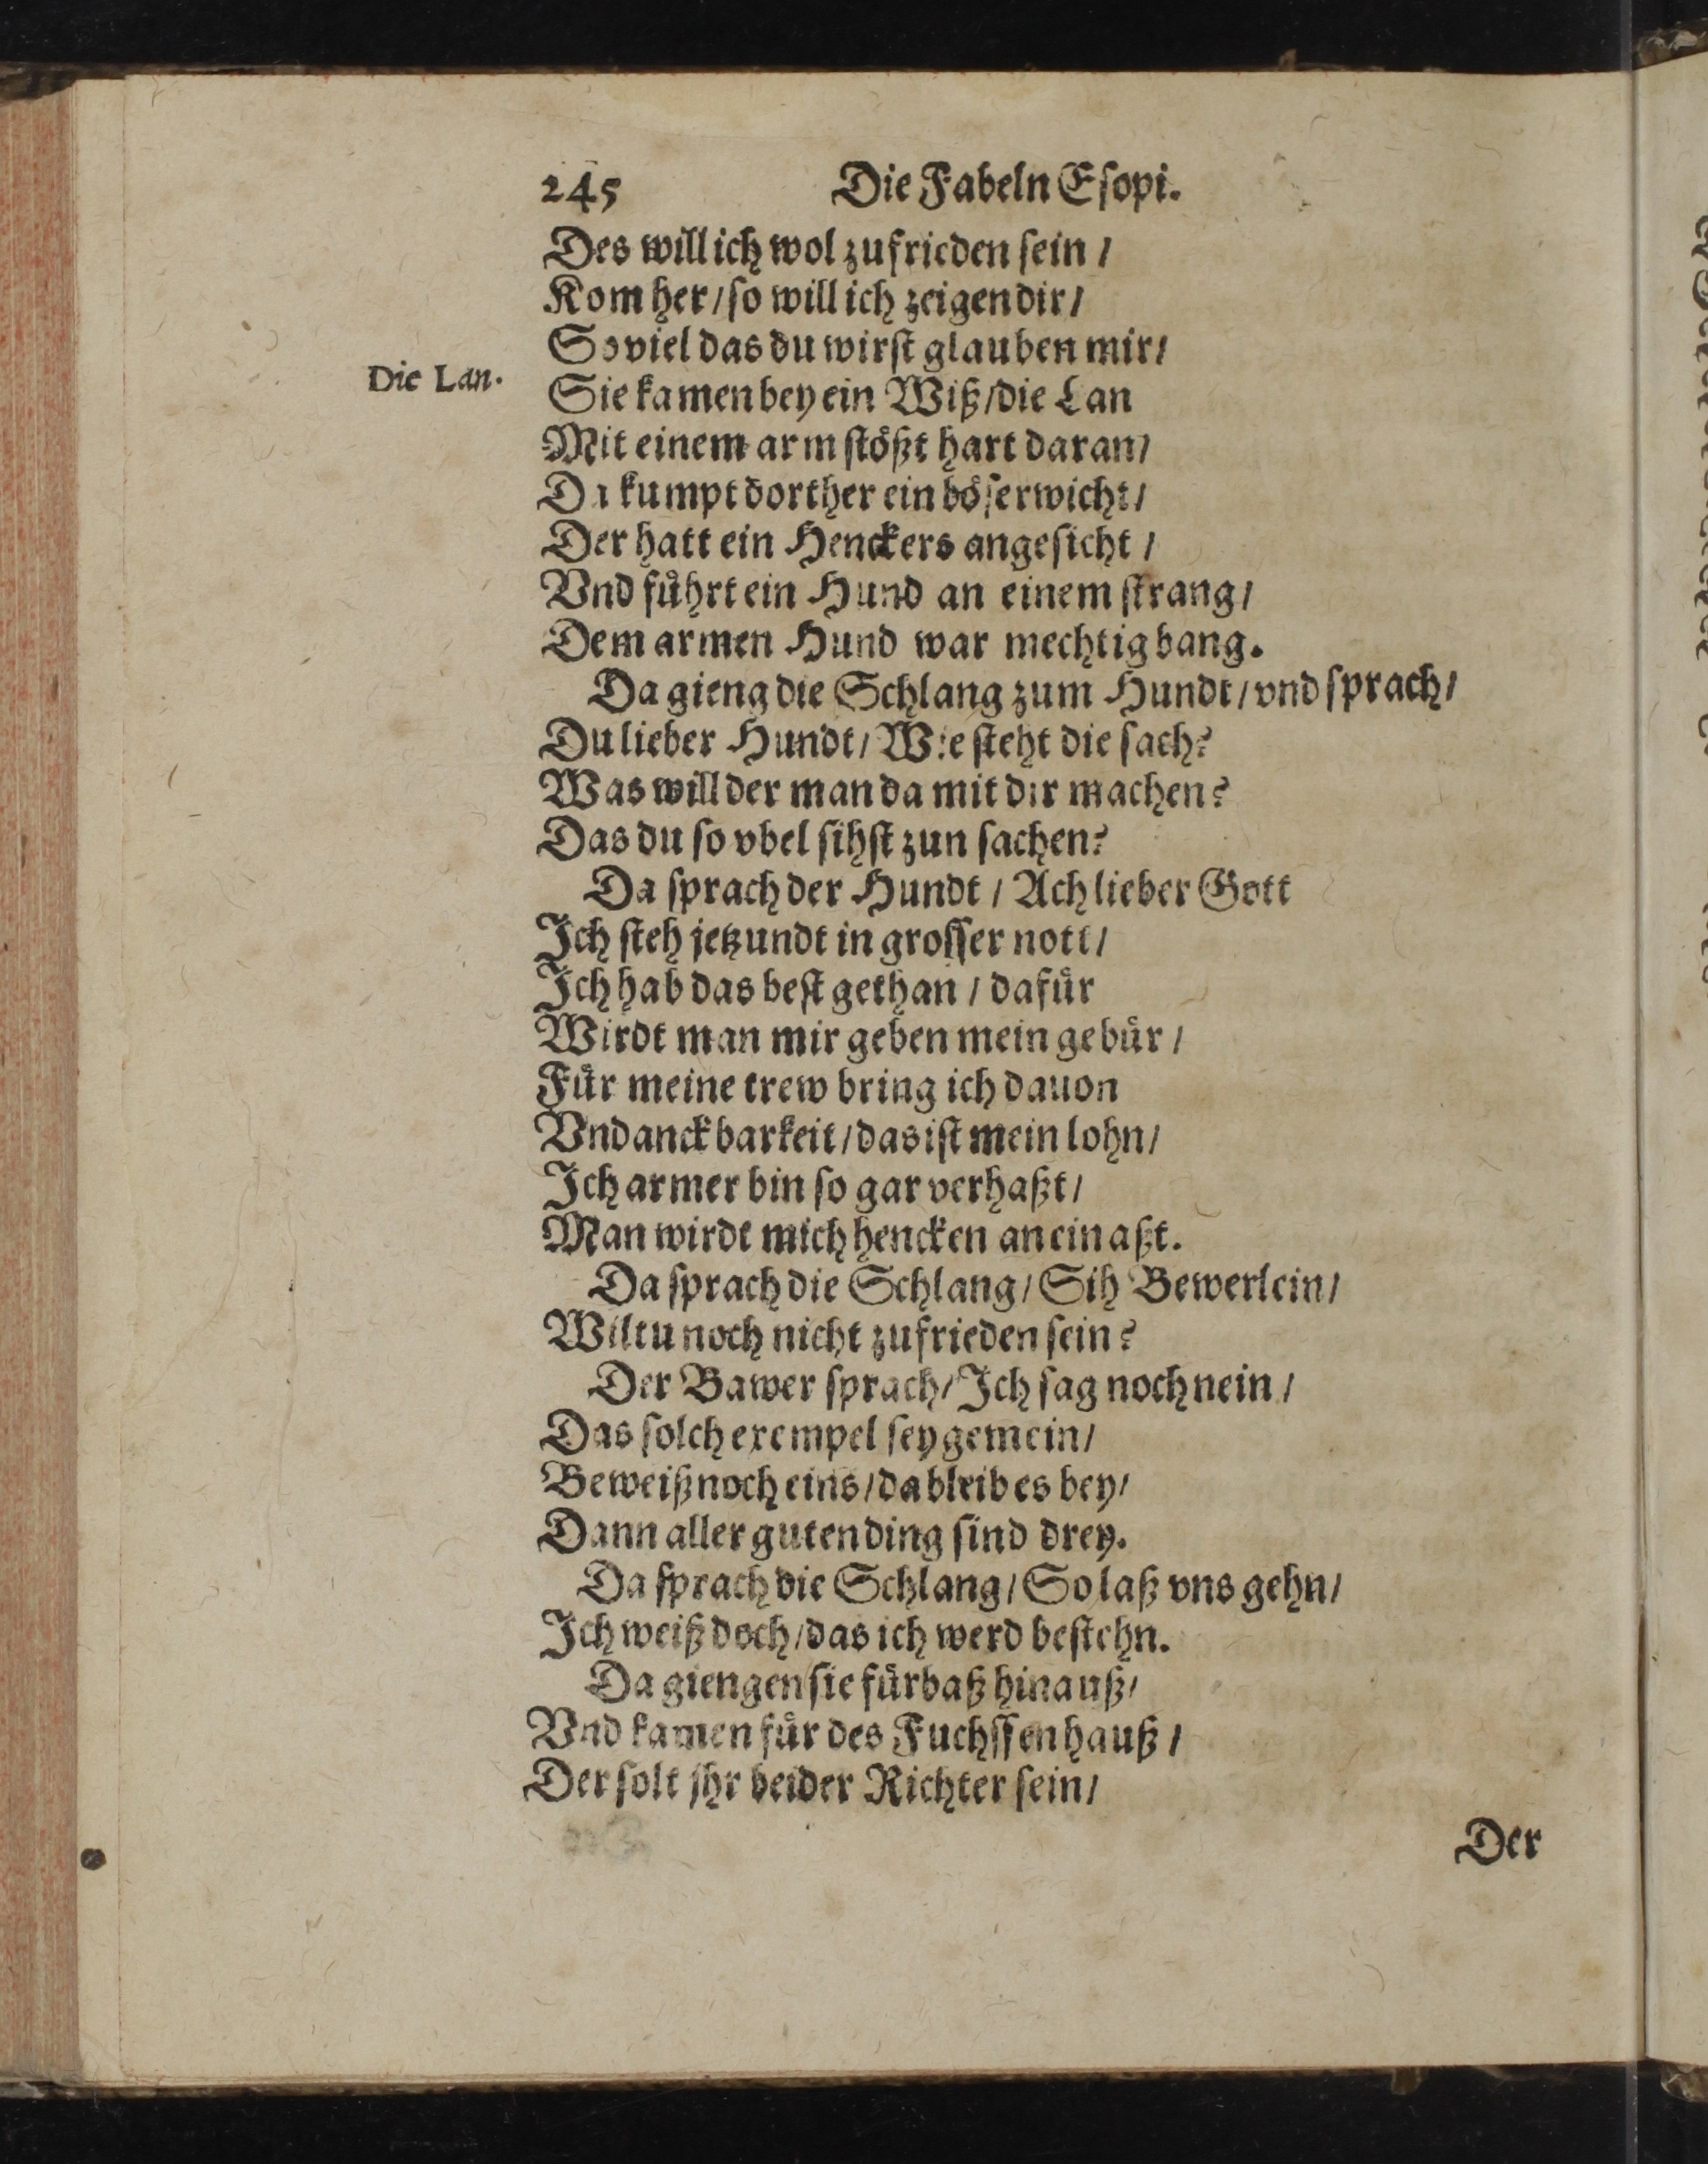 245 Die Fabeln Esopi.
Des will ich wol zufrieden sein /
Kom her / so will ich zeigen dir /
So viel das du wirst glauben mir /
Die Lan.
Sie kamen bey ein Wiß / die Lan
Mit einem arm stößt hart daran /
Da kumpt dorther ein bößerwicht /
Der hatt ein Henckers angesicht /
Vnd führt ein Hund an einem strang /
Dem armen Hund war mechtig bang.
Da gieng die Schlang zum Hundt / vnd sprach /
Du lieber Hundt / Wie steht die sach?
Was will der man da mit dir machen?
Das du so vbel sihst zun sachen?
Da sprach der Hundt / Ach lieber Gott
Ich steh jetzundt in grosser nott /
Ich hab das best gethan / dafür
Wirdt man mir geben mein gebür /
Für meine trew bring ich dauon
Vndanckbarkeit / das ist mein lohn /
Ich armer bin so gar verhaßt /
Man wirdt mich hencken an ein aßt.
Da sprach die Schlang / Sih Bewerlein /
Wiltu noch nicht zufrieden sein?
Der Bawer sprach / Ich sag noch nein /
Das solch exempel sey gemein /
Beweiß noch eins / da bleib es bey /
Dann aller guten ding sind drey.
Da sprach die Schlang / So laß vns gehn /
Ich weiß doch / das ich werd bestehn.
Da giengen sie fürbaß hinauß /
Vnd kamen für des Fuchssen hauß /
Der solt jhr beider Richter sein /
Der